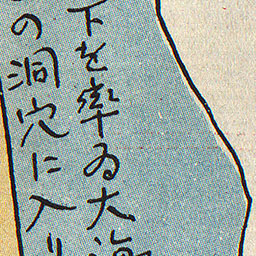 下を率ゐ大海
の洞穴に入り